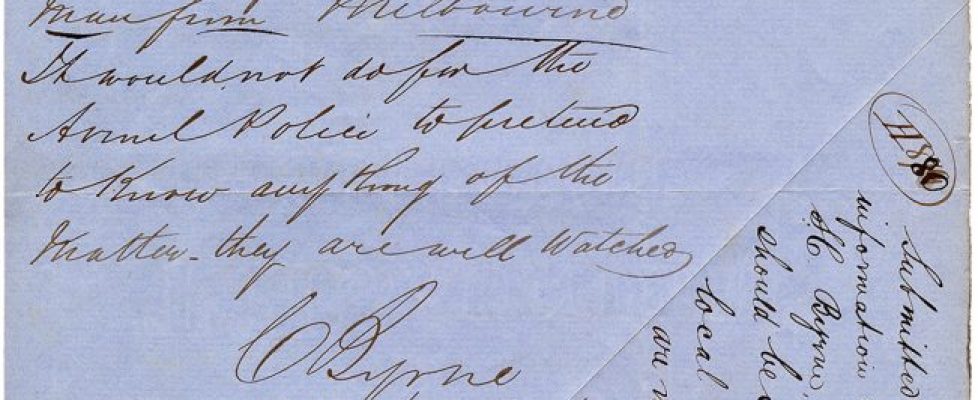 Man from Melbourne
It would not do for the
Avenel Police to pretend
to Know anything of the
Matter - they are well Watched
C Byrne
Submitted
information
H. C. Byrne,
should be
local
are